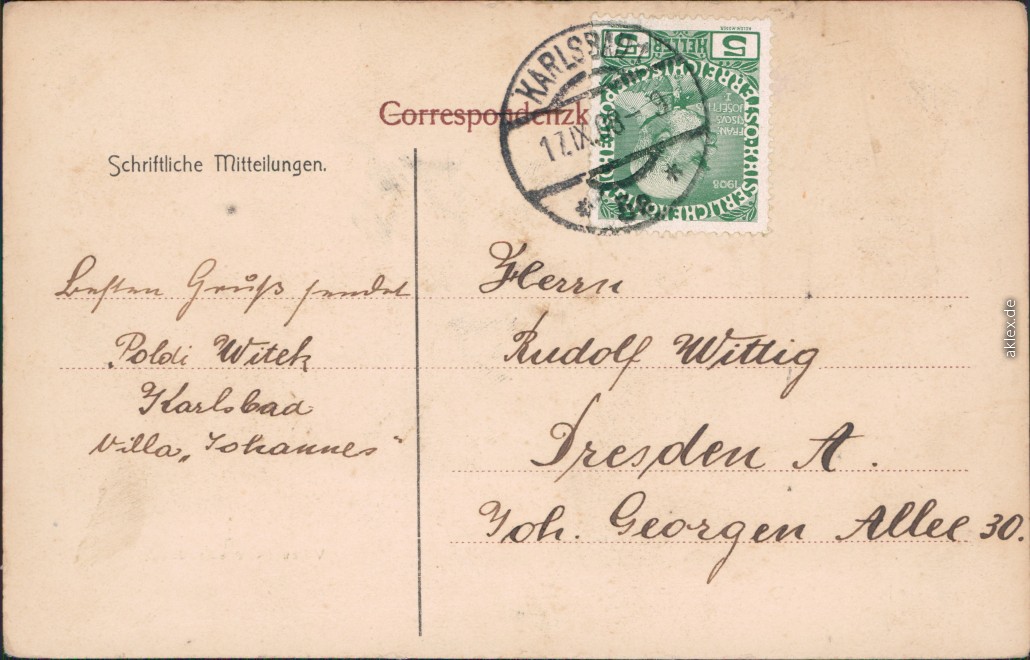 Correspondenzk
KARLSBAD 1
17.IX.08
5 HELLER 5
KAISERLICHE KÖNIGLICHE ÖSTERREICHISCHE POST
FRANZ JOSEF I.
1908
Schriftliche Mitteilungen.
Besten Gruß sendet
Poldi Witek
Karlsbad
Villa „Johannes"
Herrn
Rudolf Wittig
Dresden A.
Joh. Georgen Allee 30.
aklex.de